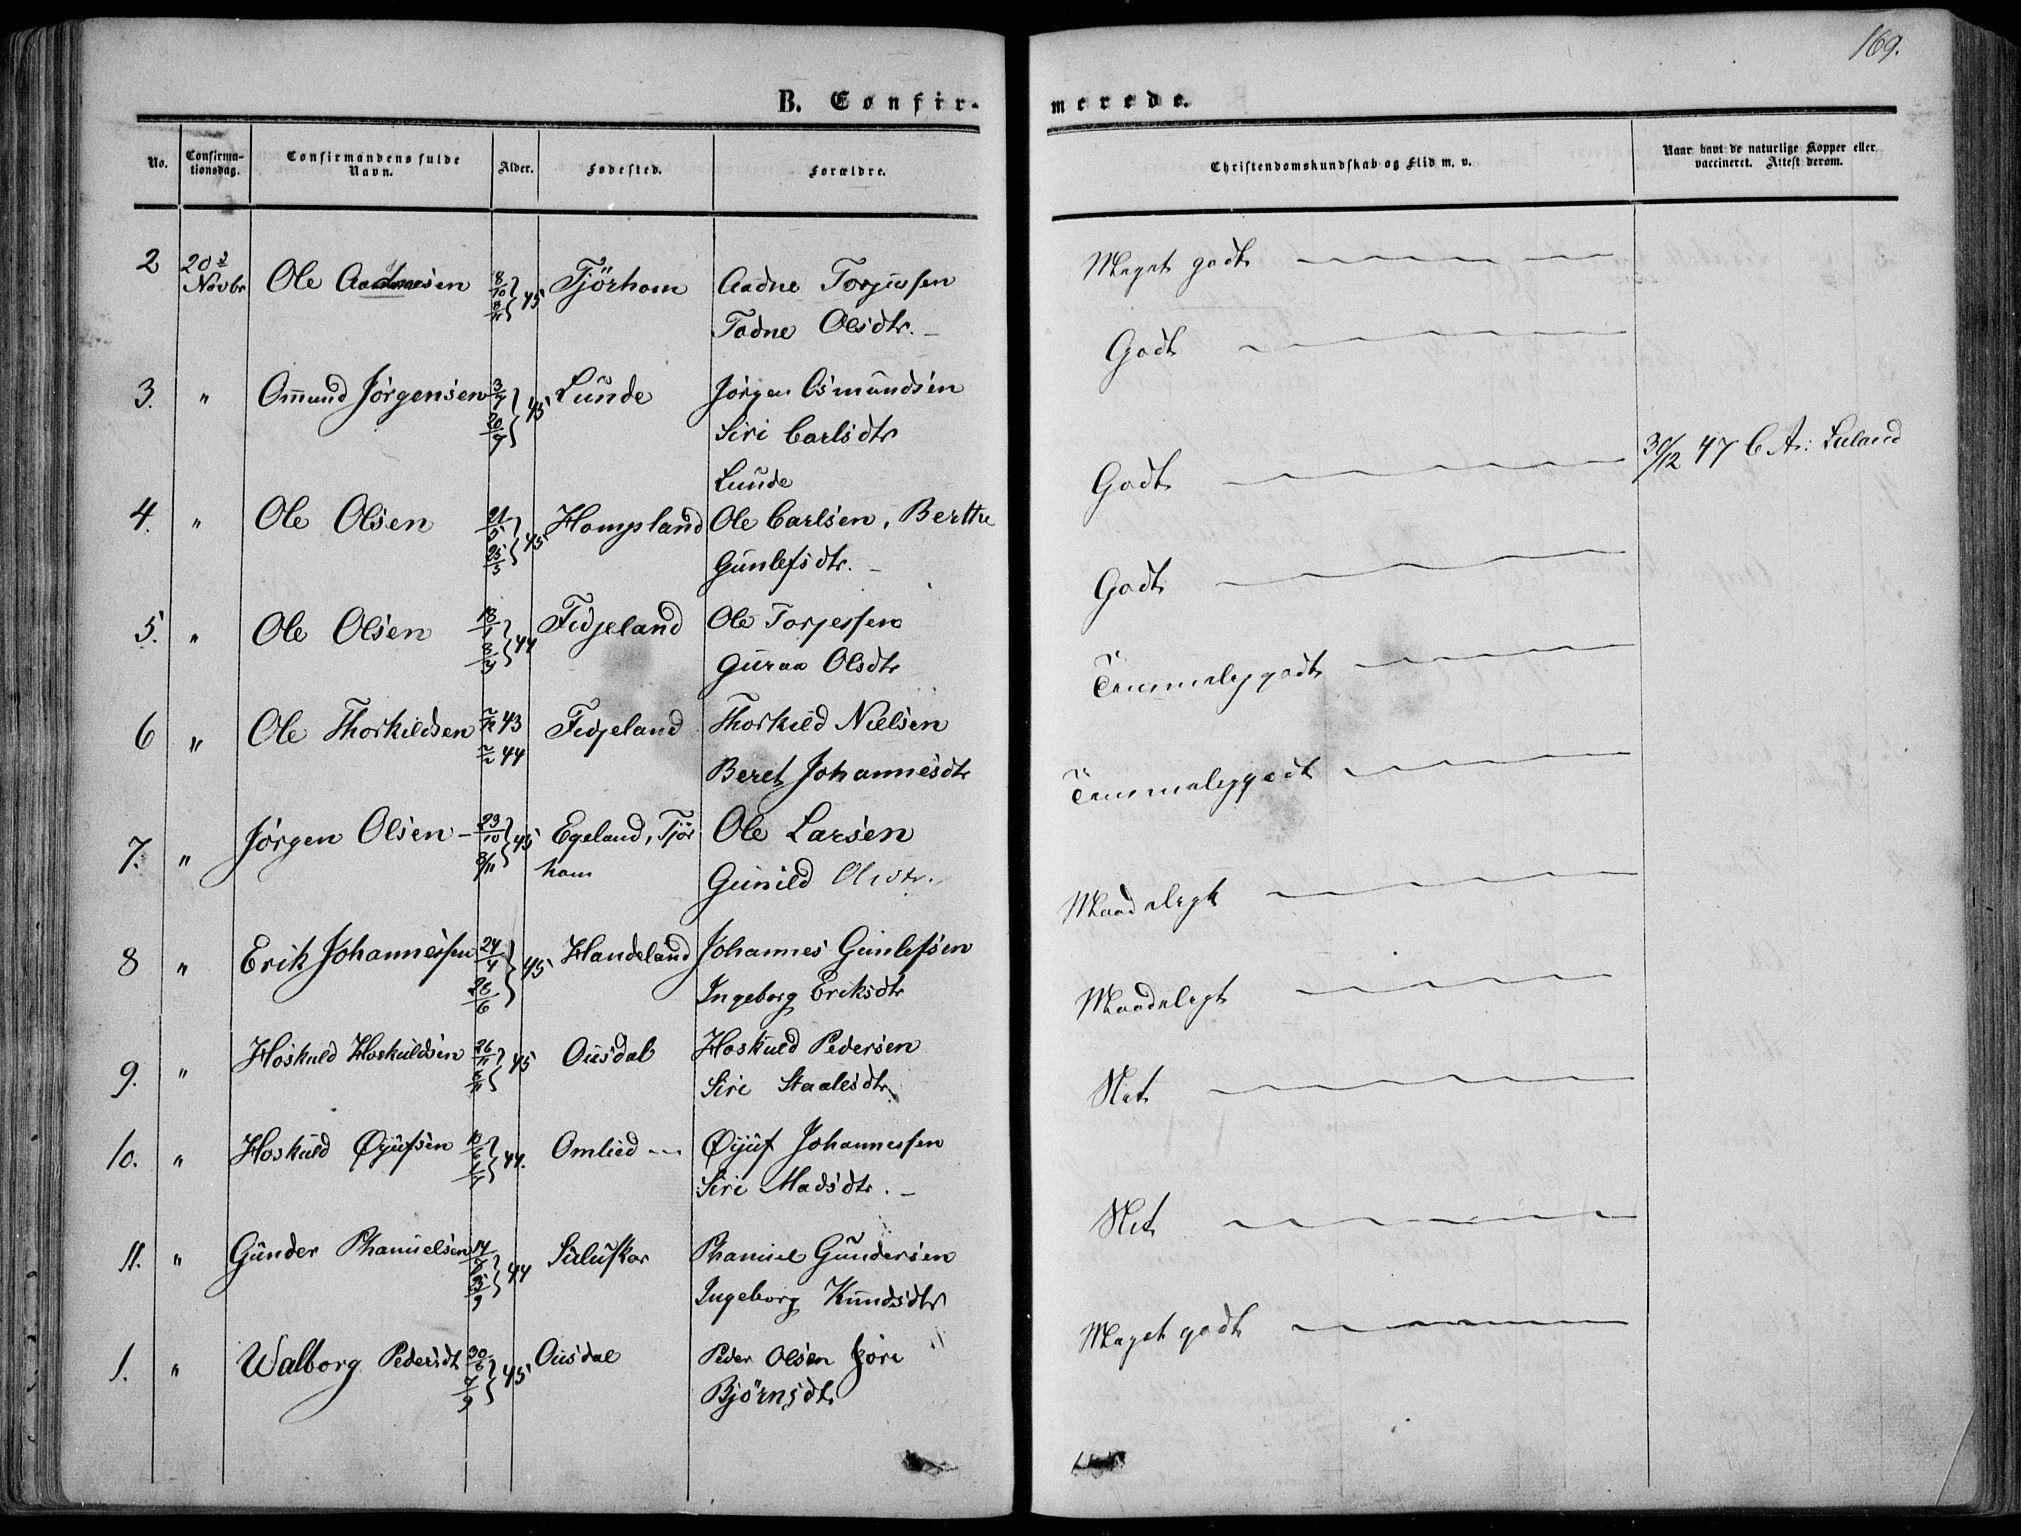 169.
B. Confirmerede.
No. Confirmationsdag. Confirmandens fulde Navn. Alder. Fødested. Forældre. Christendomskundskab og Flid m. v. Naar havt de naturlige Kopper eller vaccineret. Attest derom.
2 20de Novbr Ole Aadnesen 8/10 8/11 45 Tjörhom Aadne Torjussen Meget godt
Tadne Olsdtr.
Godt
3. " Omund Jörgensen 3/7 20/9 45 Lunde Jörgen Osmundsen
Siri Carlsdtr
Lunde
Godt 30/12 47 C At: Lieland
4. " Ole Olsen 21/5 25/5 45 Hompland Ole Carlsen, Berthe
Gunlefsdtr.
Godt
5. " Ole Olsen 18/1 8/4 44 Fidjeland Ole Torjessen
Guraa Olsdtr
Temmeleg godt
6 " Ole Thorkildsen 43 44 Fidjeland Thorkild Nielsen
Beret Johannesdtr
Temmeleg godt
7. " Jörgen Olsen 23/10 8/11 45 Egeland, Tjör Ole Larsen
hom Gunild Olsdtr.
Maadelegt
8 " Erik Johannessen 24/4 28/6 45 Haudeland Johannes Gunlefsen
Ingeborg Eriksdtr
Maadelegt
9. " Hoskuld Hoskuldsen 45 Ousdal Hoskuld Pedersen
Siri Staalesdtr
Net
10. " Hoskuld Øjufsen 44. Omlied Øjuf Johannessen
Siri Madsdtr.
Net
11. " Gunder Phanuelsen 14/8 44 Siluskar Phanuel Gundersen
Ingeborg Knudsdtr
1. " Walborg Pedersdt 30/6 7/9 45 Ousdal Peder Olsen Jöri
Björnsdtr
Meget godt